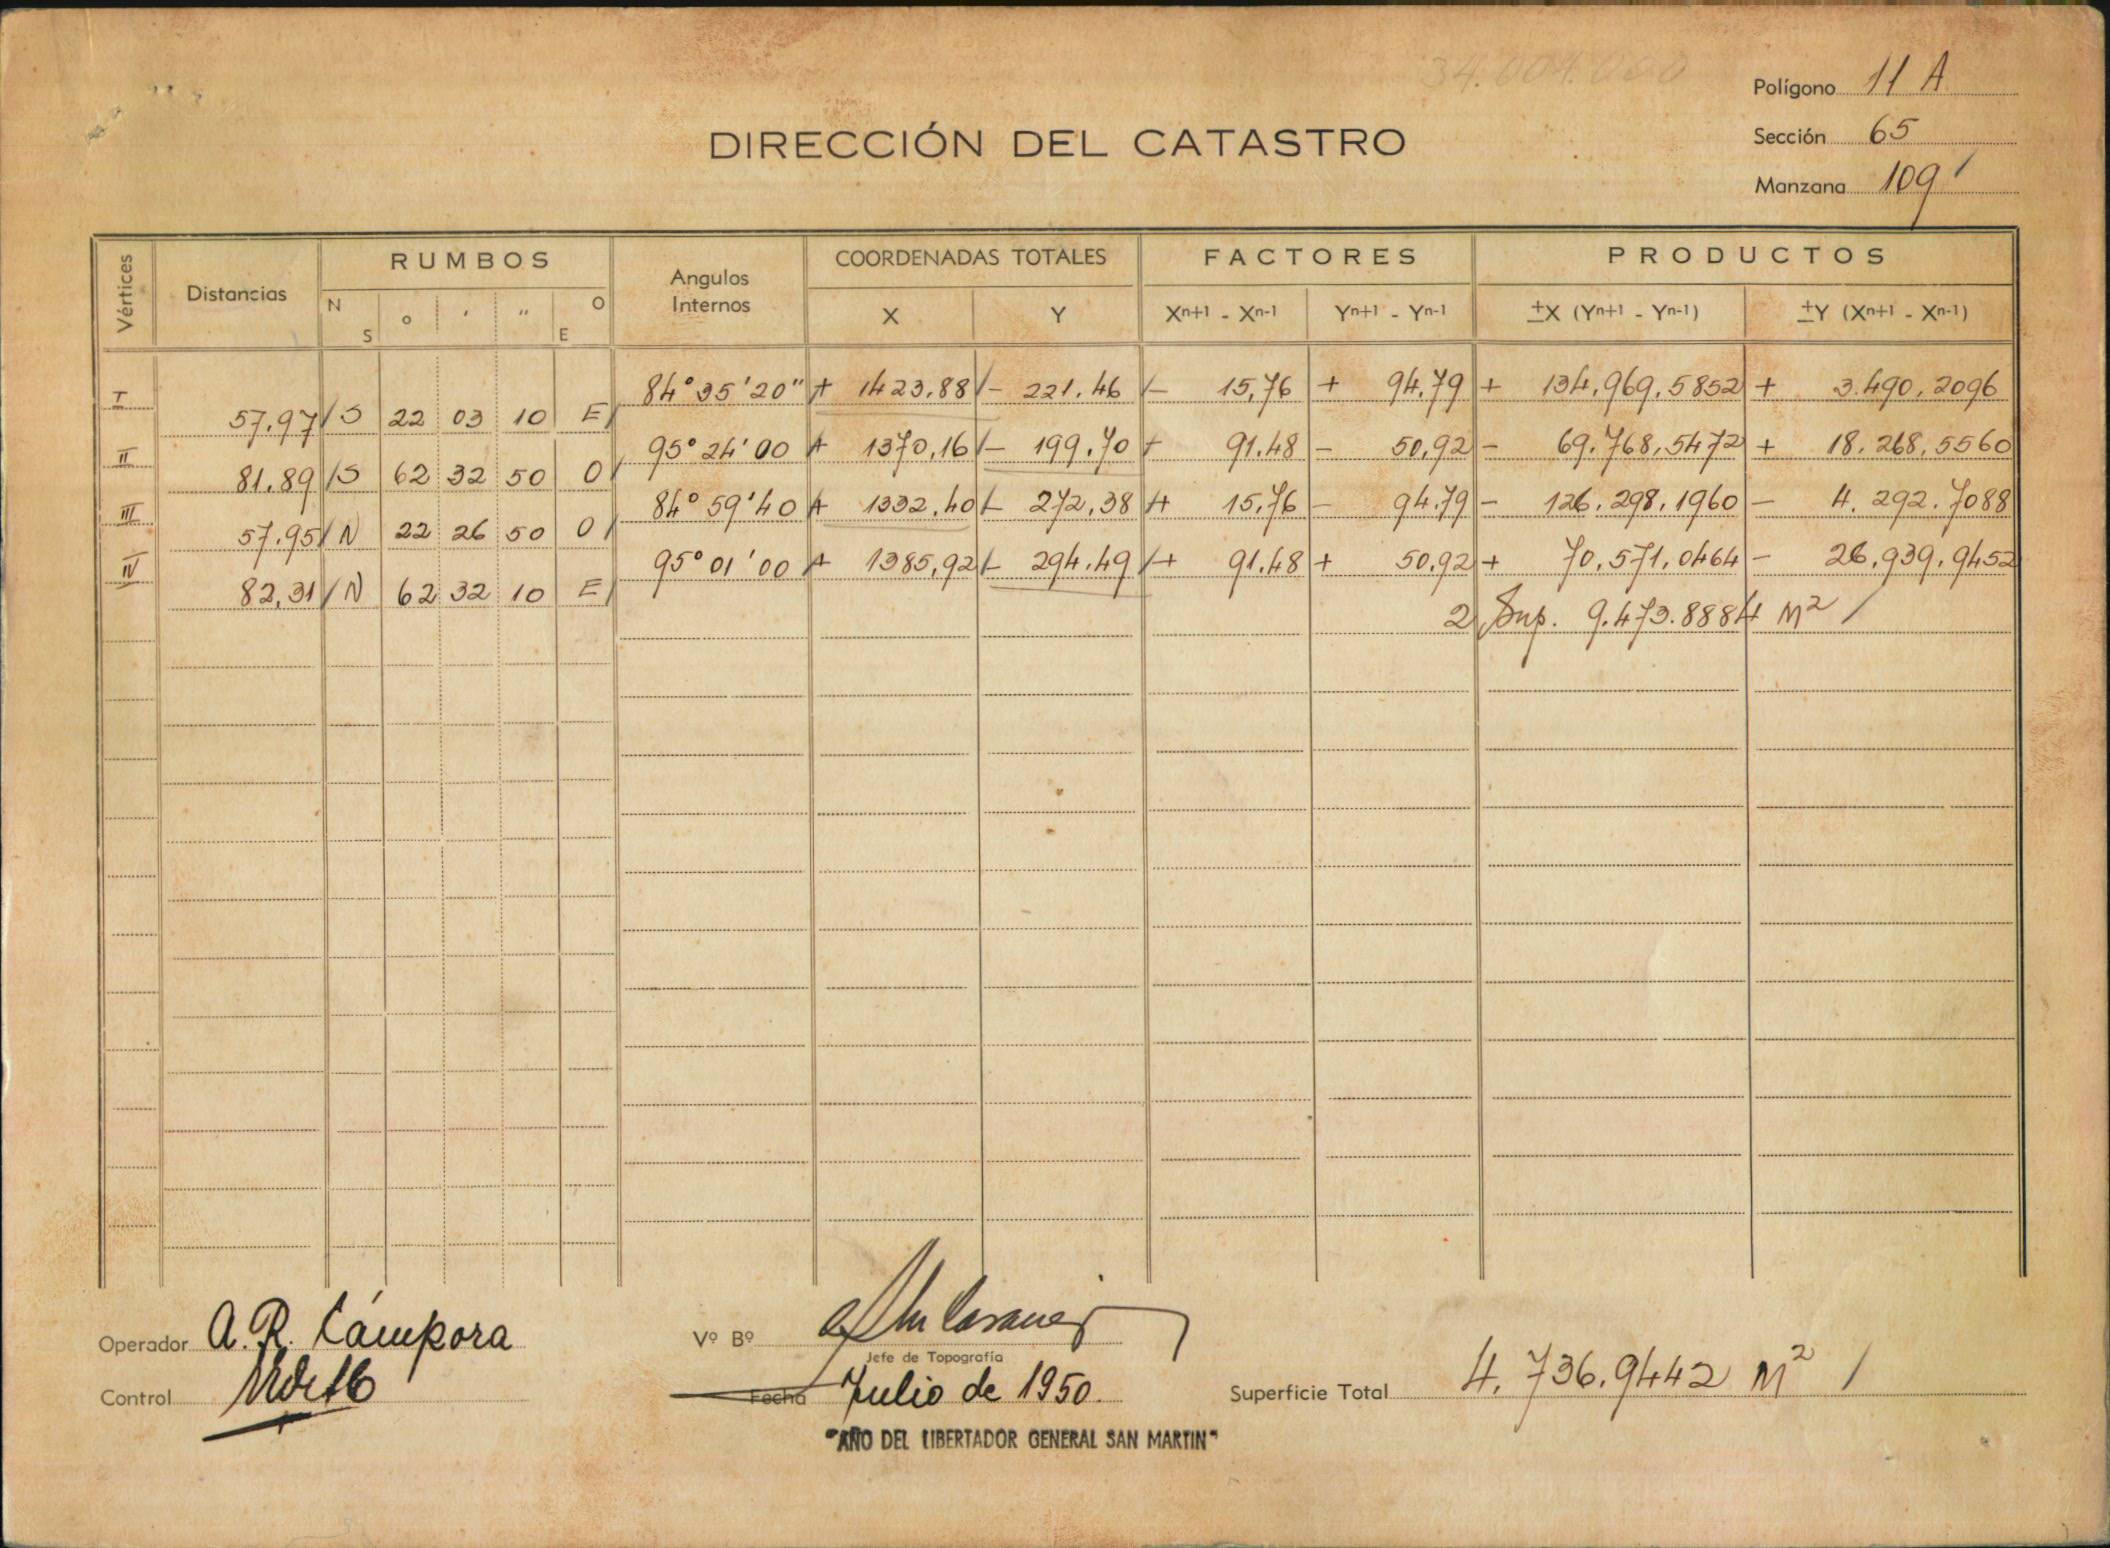 34.004.060
Polígono 11 A
DIRECCIÓN DEL CATASTRO
Sección 65
Manzana 109
Vértices
Distancias
RUMBOS
N S ° ' " O E
Angulos Internos
COORDENADAS TOTALES
X Y
FACTORES
Xn+1 - Xn-1 Yn+1 - Yn-1
PRODUCTOS
±X (Yn+1 - Yn-1) ±Y (Xn+1 - Xn-1)
I 84° 35' 20" + 1423,88 - 221.46 - 15,76 + 94,79 + 134,969,5852 + 3.490,2096
57,97 S 22 03 10 E
II 95° 24' 00 + 1370,16 - 199,70 + 91.48 - 50,92 - 69.768,5472 + 18.268,5560
81.89 S 62 32 50 O
III 84° 59' 40 + 1332,40 - 272,38 + 15,76 - 94.79 - 126.298,1960 - 4.292.7088
57.95 N 22 26 50 O
IV 95° 01' 00 + 1385,92 - 294.49 + 91.48 + 50,92 + 70,571,0464 - 26,939,9452
82,31 N 62 32 10 E
2 Sup. 9.473.8884 M²
Operador A. R. Cámpora
Vº Bº
Jefe de Topografía
Control
Fecha Julio de 1950.
Superficie Total 4.736.9442 M²
"AÑO DEL LIBERTADOR GENERAL SAN MARTIN"